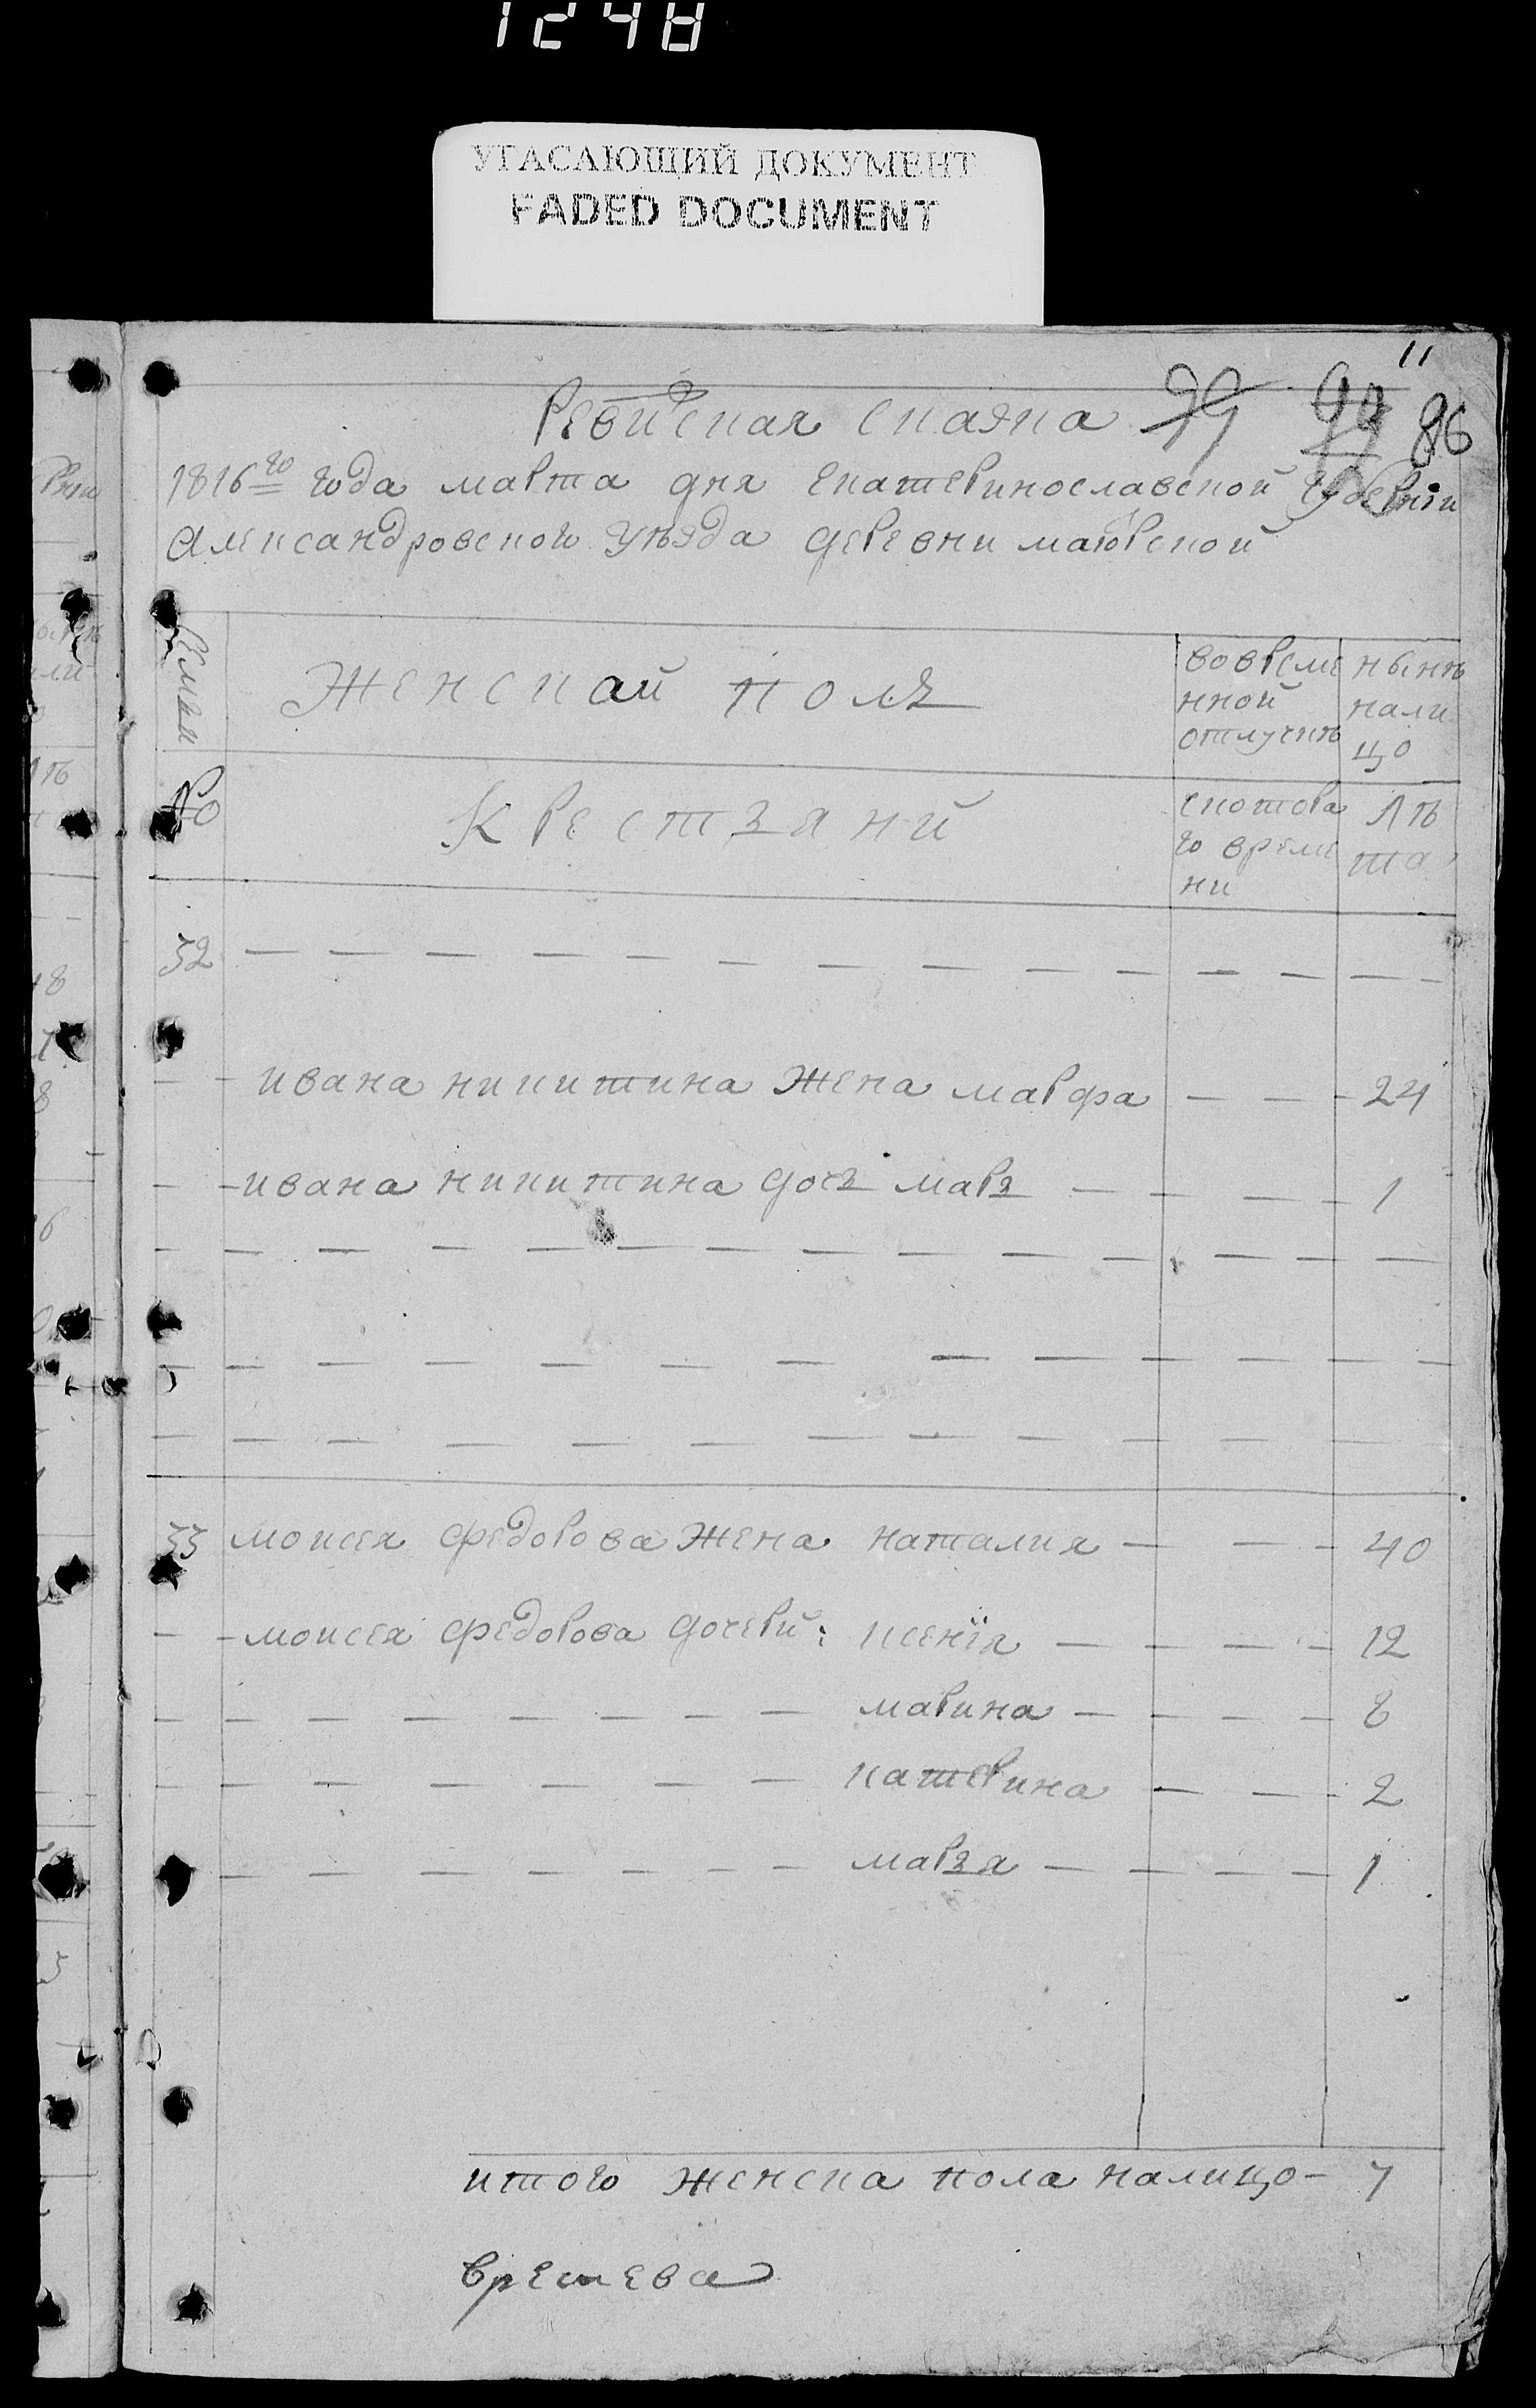 1248
УГАСАЮЩИЙ ДОКУМЕНТ
FADED DOCUMENT
11
Ревиская скаска 79 86
1816го года марта дня Екатеринославской губернiи
Александровской уѣзда деревни маiорской
Семьи Женскай полъ вовреме нной отлучкѣ нынѣ нали цо
№ Крестьяни скотора го време ни лѣ та
32
ивана никитина жена марфа 24
ивана никитина дочь марь 1
33 моисея федорова жена наталия 40
моисея федорова дочери: ксенiя 12
марина 8
катерина 2
марья 1
итого женска пола налицо 7